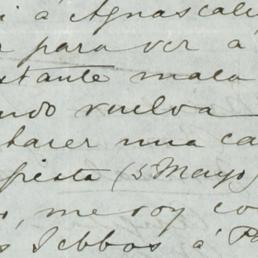 á Aguascali
para ver á
stante mala
ndo vuelva
tarer una ca
fiesta (5 Mayo)
, me voy co
s Sebbos á Pa